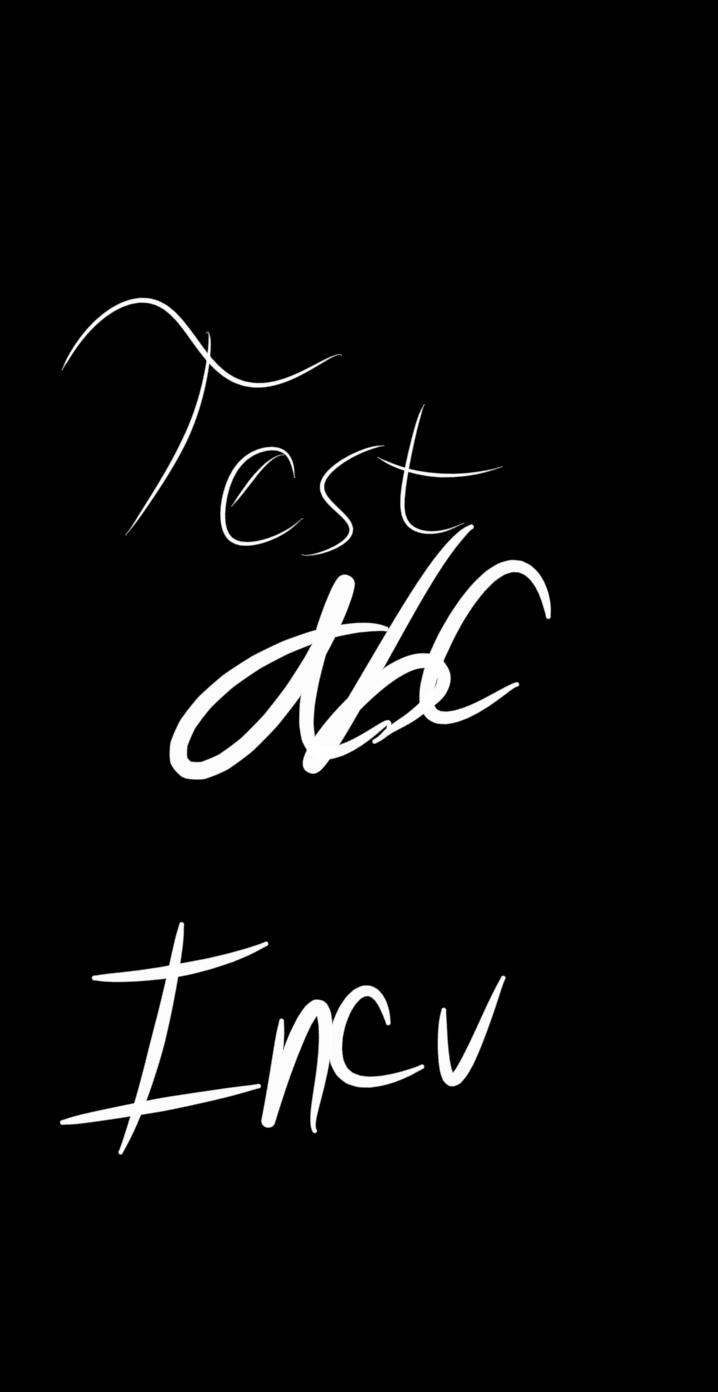 Test
abc
Incv